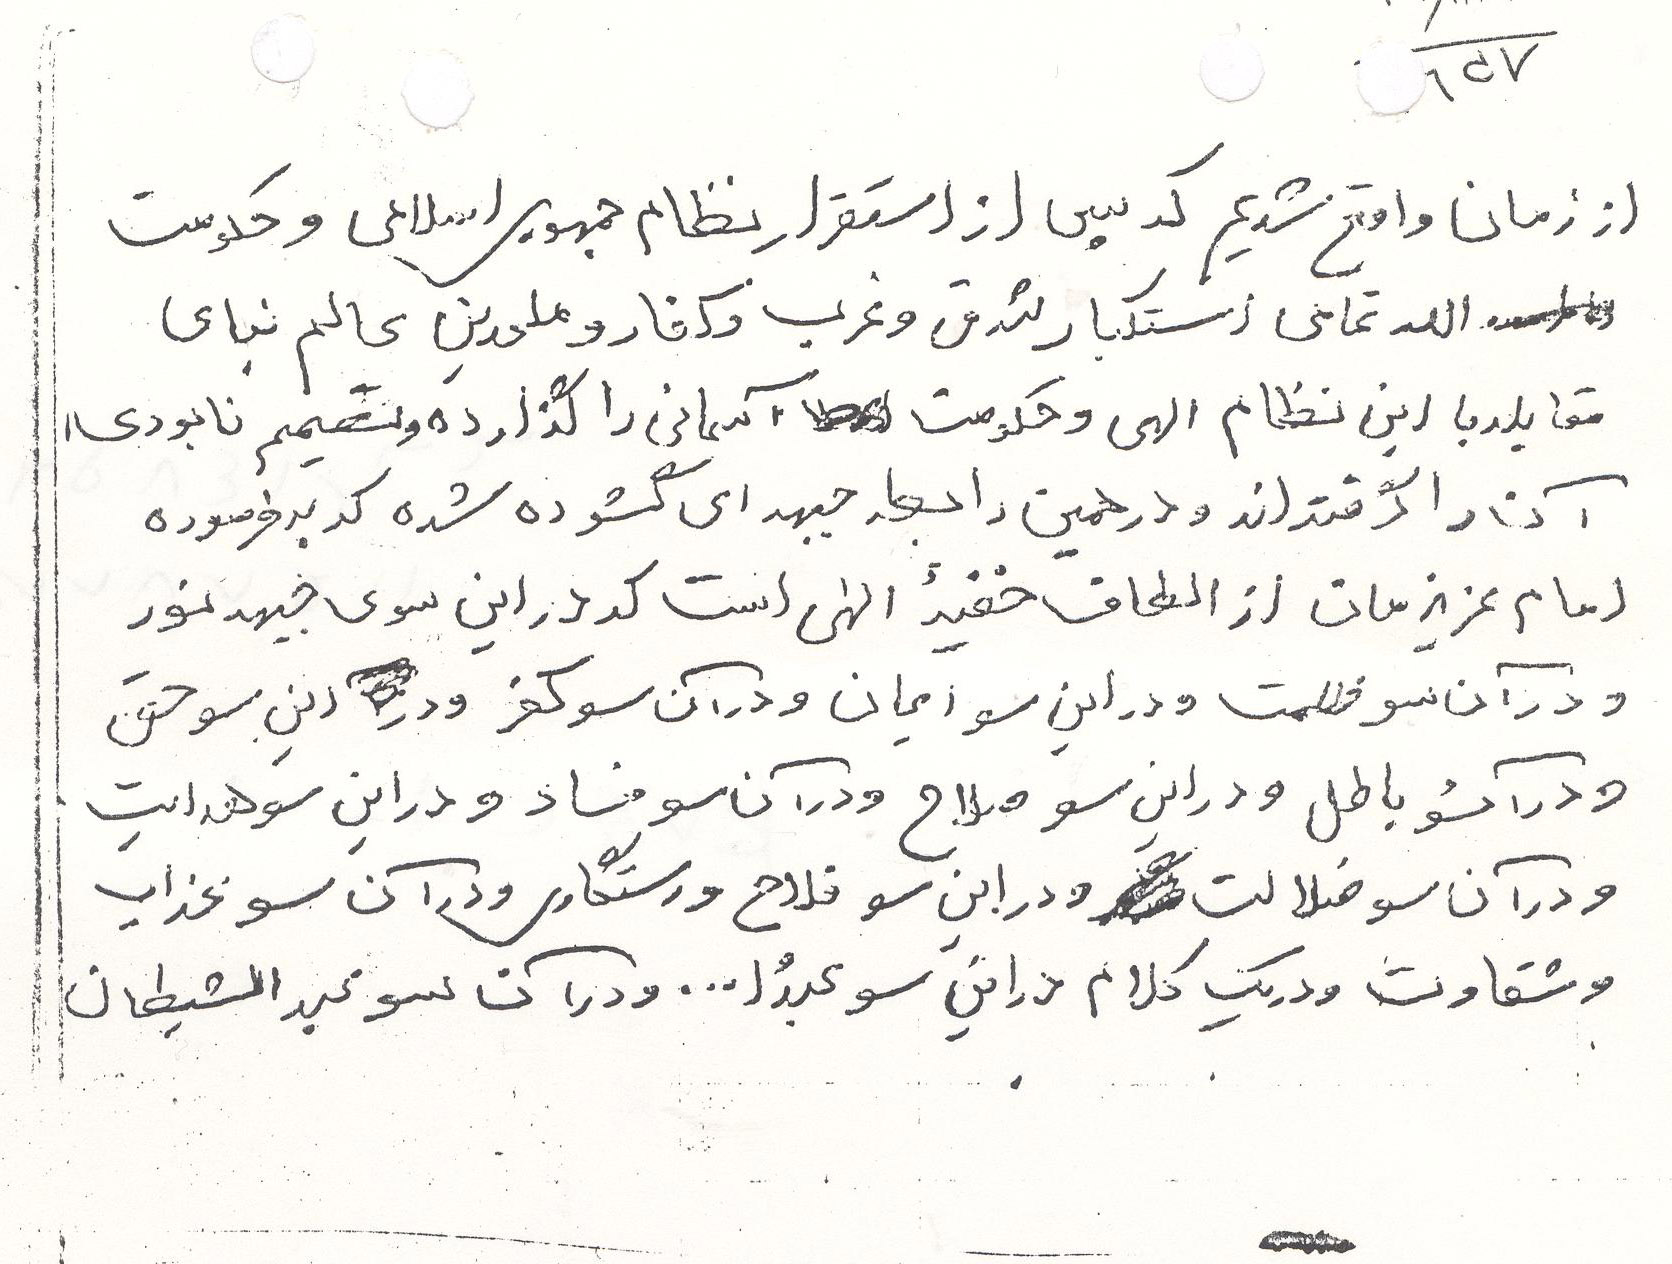 ۱۵۷
از زمان واقع شدیم که پس از استقرار نظام جمهوری اسلامی و حکومت
الله تمامی استکبار شرق و غرب و کفار و ملحدین عالم بنای
مقابله با این نظام الهی و حکومت آسمانی را گذارده و تصمیم نابودی
آن را گرفته‌اند و در همین رابطه جبهه‌ای گشوده شده که به فرموده
امام عزیزمان از الطاف خفیهٔ الهی است که در این سوی جبهه نور
و در آن سو ظلمت و در این سو ایمان و در آن سو کفر و در این سو حق
و در آنسو باطل و در این سو صلاح و در آن سو فساد و در این سو هدایت
و در آن سو ضلالت و در این سو فلاح و رستگاری و در آن سو عذاب
و شقاوت و در یک کلام در این سو عبدُا... و در آن سو عبد الشیطان